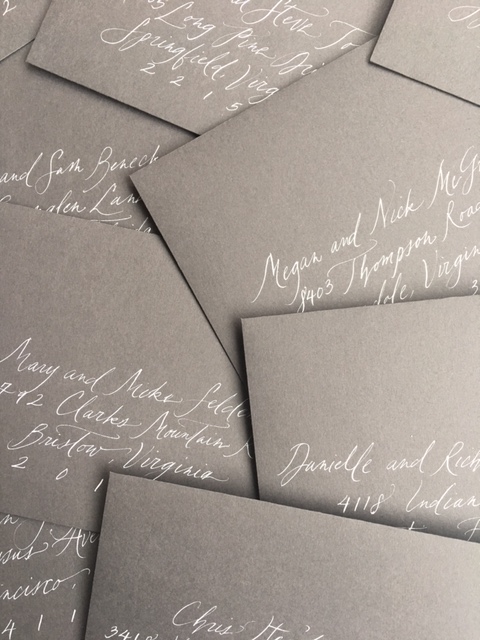 Steve
Long Pine
Springfield, Virg
2 2 1 5
and Sam
Lan
Megan and Nick McG
8403 Thompson Road
dale, Virgin
Mary and Mike Felde
792 Clarks Mountain R
Bristow Virginia
2 0 1
Danielle and Rich
4118 Indian
Av
ncisco,
4 1 1
Chris
341